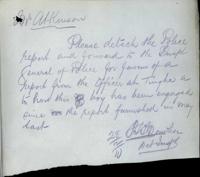 Mr Atkinson
Please detach the Police
report and forward to the Inspr
General of Police for favour of a
report from the Officer at Tingha as
to how this boy has been engaged
since the report furnished in May
last
Act Supt